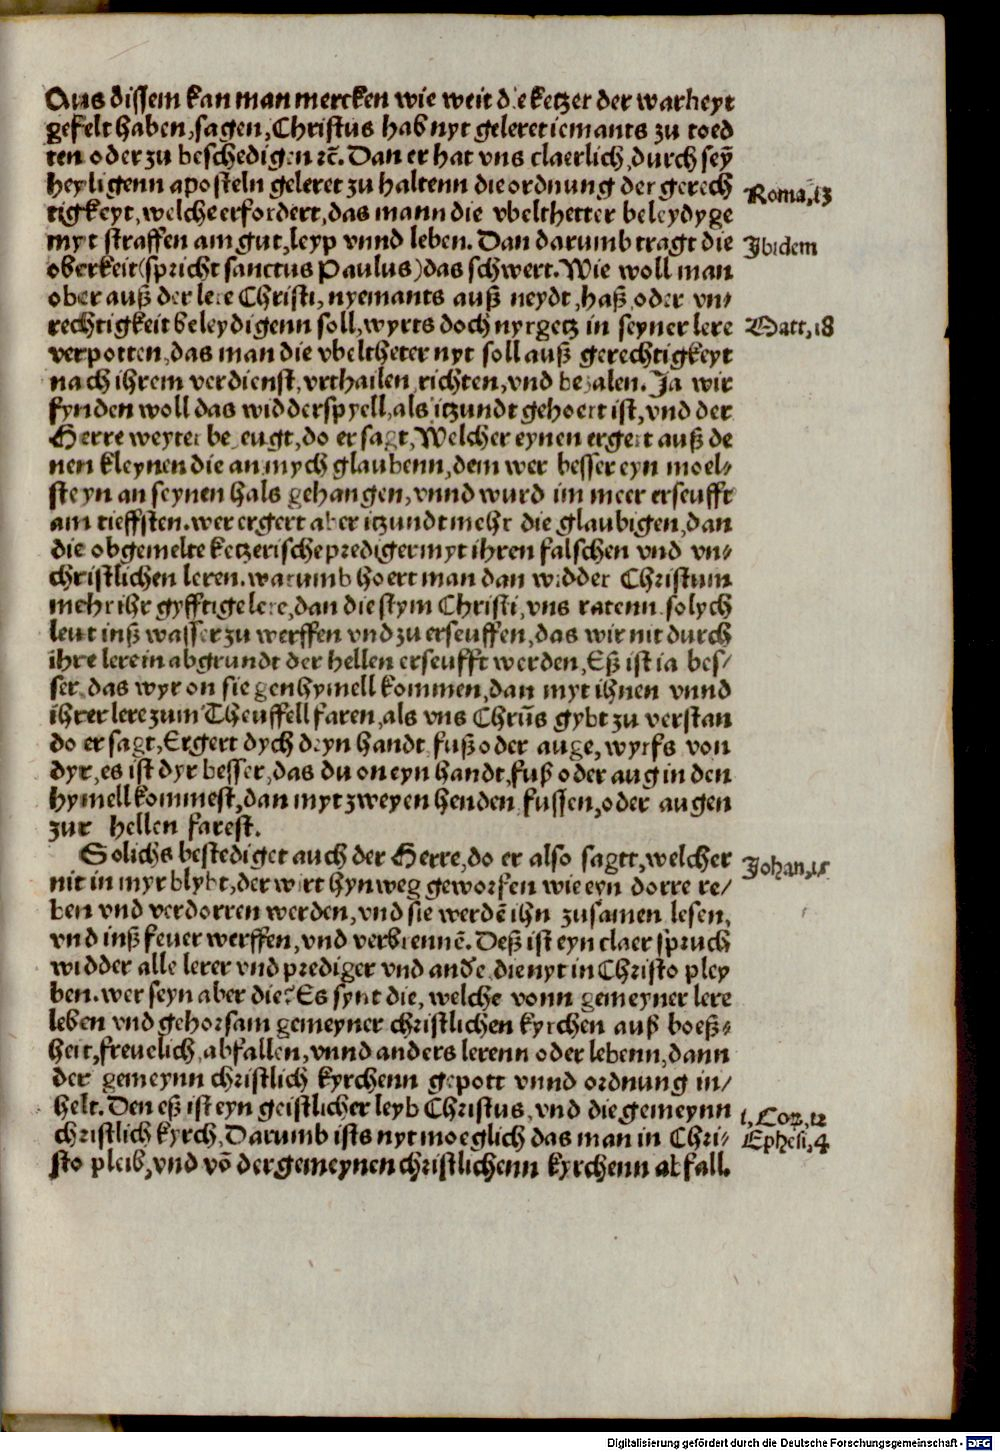 Aus dissem kan man mercken wie weit die ketzer der warheyt
gefelt haben, sagen, Christus hab nyt geleret iemants zu toed
ten oder zu beschedigen ꝛc̄. Dan er hat vns claerlich, durch sey̅
heyligenn aposteln geleret zu haltenn die ordnung der gerech
tigkeyt, welche erfordert, das mann die vbelthetter beleydyge
myt straffen am gut, leyp vnnd leben. Dan darumb tragt die
oberkeit (spricht sanctus Paulus) das schwert. Wie woll man
ober auß der lere Christi, nyemants auß neydt, haß oder vn⸗
rechtigkeit beleydigenn soll, wyrts doch nyrgetz in seyner lere
verpotten, das man die vbeltheter nyt soll auß gerechtigkeyt
nach ihrem verdienst, vrthailen richten, vnd bezalen. Ja wir
fynden woll das widderspyell, als itzundt gehoert ist, vnd der
Herre weyter bezeugt, do er sagt, Welcher eynen ergert auß de
nen kleynen die an mych glaubenn, dem wer besser eyn moel⸗
steyn an seynen hals gehangen, vnnd wurd im meer erseufft
am tieffsten. wer ergert aber itzundt mehr die glaubigen, dan
die obgemelte ketzerische prediger myt ihren falschen vnd vn⸗
christlichen leren. warumb hoert man dan widder Christum
mehr ihr gyfftige lere, dan die stym Christi, vns ratenn solych
leut inß wasser zu werffen vnd zu erseuffen, das wir nit durch
ihre lere in abgrundt der hellen erseufft werden, Eß ist ia bes/
ser das wyr on sie gen hymell kommen, dan myt ihnen vnnd
ihrer lere zum Theuffell faren, als vns Chrūs gybt zu verstan
do er sagt, Ergert dych deyn handt fuß oder auge, wyrfs von
dyr, es ist dyr besser, das du on eyn handt, fuß oder aug in den
hymell kommest, dan myt zweyen henden fussen, oder augen
zur hellen farest.
Solichs bestediget auch der Herre, do er also sagtt, welcher
nit in myr blybt, der wirt hynweg geworfen wie eyn dorre re/
ben vnd verdorren werden, vnd sie werdē ihn zusamen lesen,
vnd inß feuer werffen, vnd verbrennē. Deß ist eyn claer spruch
widder alle lerer vnd prediger vnd ande, die nyt in Christo pley
ben. wer seyn aber die? Es synt die, welche vonn gemeyner lere
leben vnd gehorsam gemeyner christlichen kyrchen auß boeß⸗
heit, freuelich abfallen, vnnd anders lerenn oder lebenn, dann
der gemeynn christlich kyrchenn gepott vnnd ordnung in/
helt. Den eß ist eyn geistlicher leyb Christus, vnd die gemeynn
christlich kyrch, Darumb ists nyt moeglich das man in Chri⸗
sto pleib, vnd vō der gemeynen christlichenn kyrchenn abfall.
Roma, 13
Ibidem
Matt, 18
Johan, 15
1, Cor, 12
Ephesi, 4
Digitalisierung gefördert durch die Deutsche Forschungsgemeinschaft - DFG